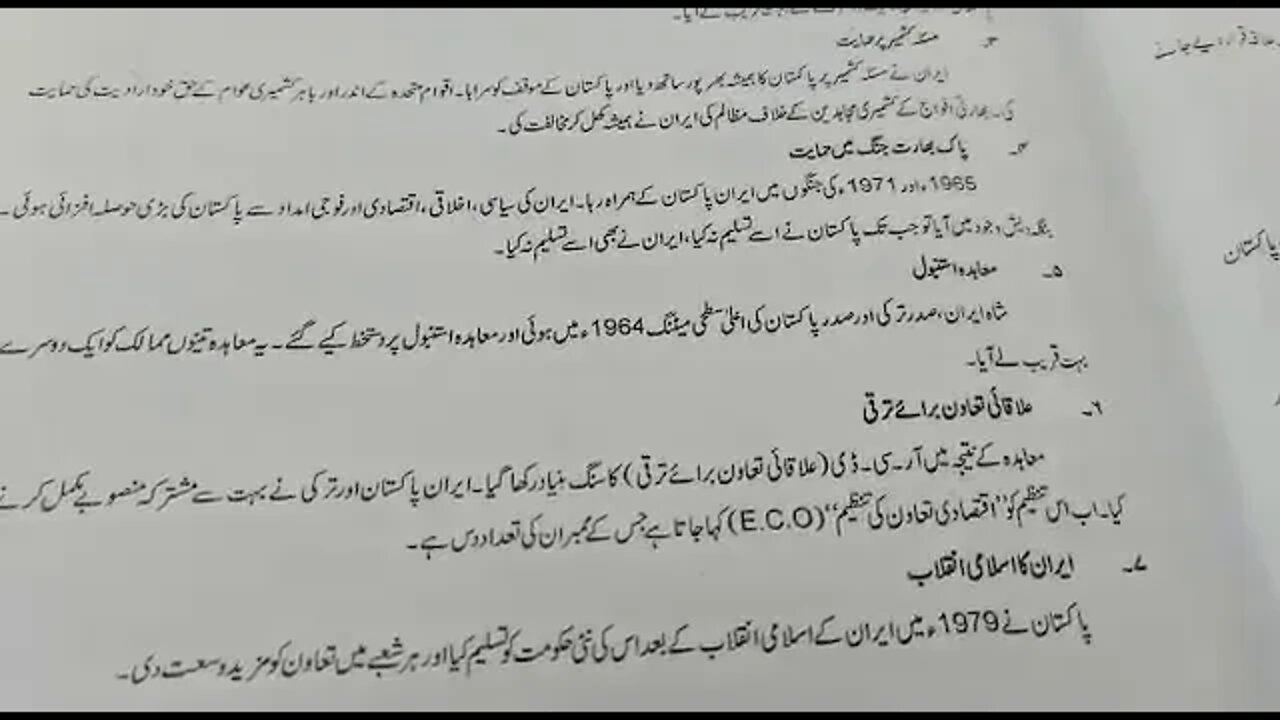 ۳۔ مسئلہ کشمیر پر حمایت
ایران نے مسئلہ کشمیر پر پاکستان کا ہمیشہ بھرپور ساتھ دیا اور پاکستان کے موقف کو سراہا۔ اقوام متحدہ کے اندر اور باہر کشمیری عوام کے حق خودارادیت کی حمایت
کی۔ بھارتی افواج کے کشمیری مجاہدین کے خلاف مظالم کی ایران نے ہمیشہ کھل کر مخالفت کی۔
۴۔ پاک بھارت جنگ میں حمایت
1965ء اور 1971ء کی جنگوں میں ایران پاکستان کے ہمراہ رہا۔ ایران کی سیاسی، اخلاقی، اقتصادی اور فوجی امداد سے پاکستان کی بڑی حوصلہ افزائی ہوئی۔
بنگلہ دیش وجود میں آیا تو جب تک پاکستان نے اسے تسلیم نہ کیا، ایران نے بھی اسے تسلیم نہ کیا۔
۵۔ معاہدہ استنبول
شاہ ایران، صدر ترکی اور صدر پاکستان کی اعلیٰ سطحی میٹنگ 1964ء میں ہوئی اور معاہدہ استنبول پر دستخط کیے گئے۔ یہ معاہدہ تینوں ممالک کو ایک دوسرے
بہت قریب لے آیا۔
۶۔ علاقائی تعاون برائے ترقی
معاہدہ کے نتیجہ میں آر۔سی۔ڈی (علاقائی تعاون برائے ترقی) کا سنگ بنیاد رکھا گیا۔ ایران پاکستان اور ترکی نے بہت سے مشترکہ منصوبے مکمل کرنے
کیا۔ اب اس تنظیم کو "اقتصادی تعاون کی تنظیم" (E.C.O) کہا جاتا ہے جس کے ممبران کی تعداد دس ہے۔
۷۔ ایران کا اسلامی انقلاب
پاکستان نے 1979ء میں ایران کے اسلامی انقلاب کے بعد اس کی نئی حکومت کو تسلیم کیا اور ہر شعبے میں تعاون کو مزید وسعت دی۔
پاکستان